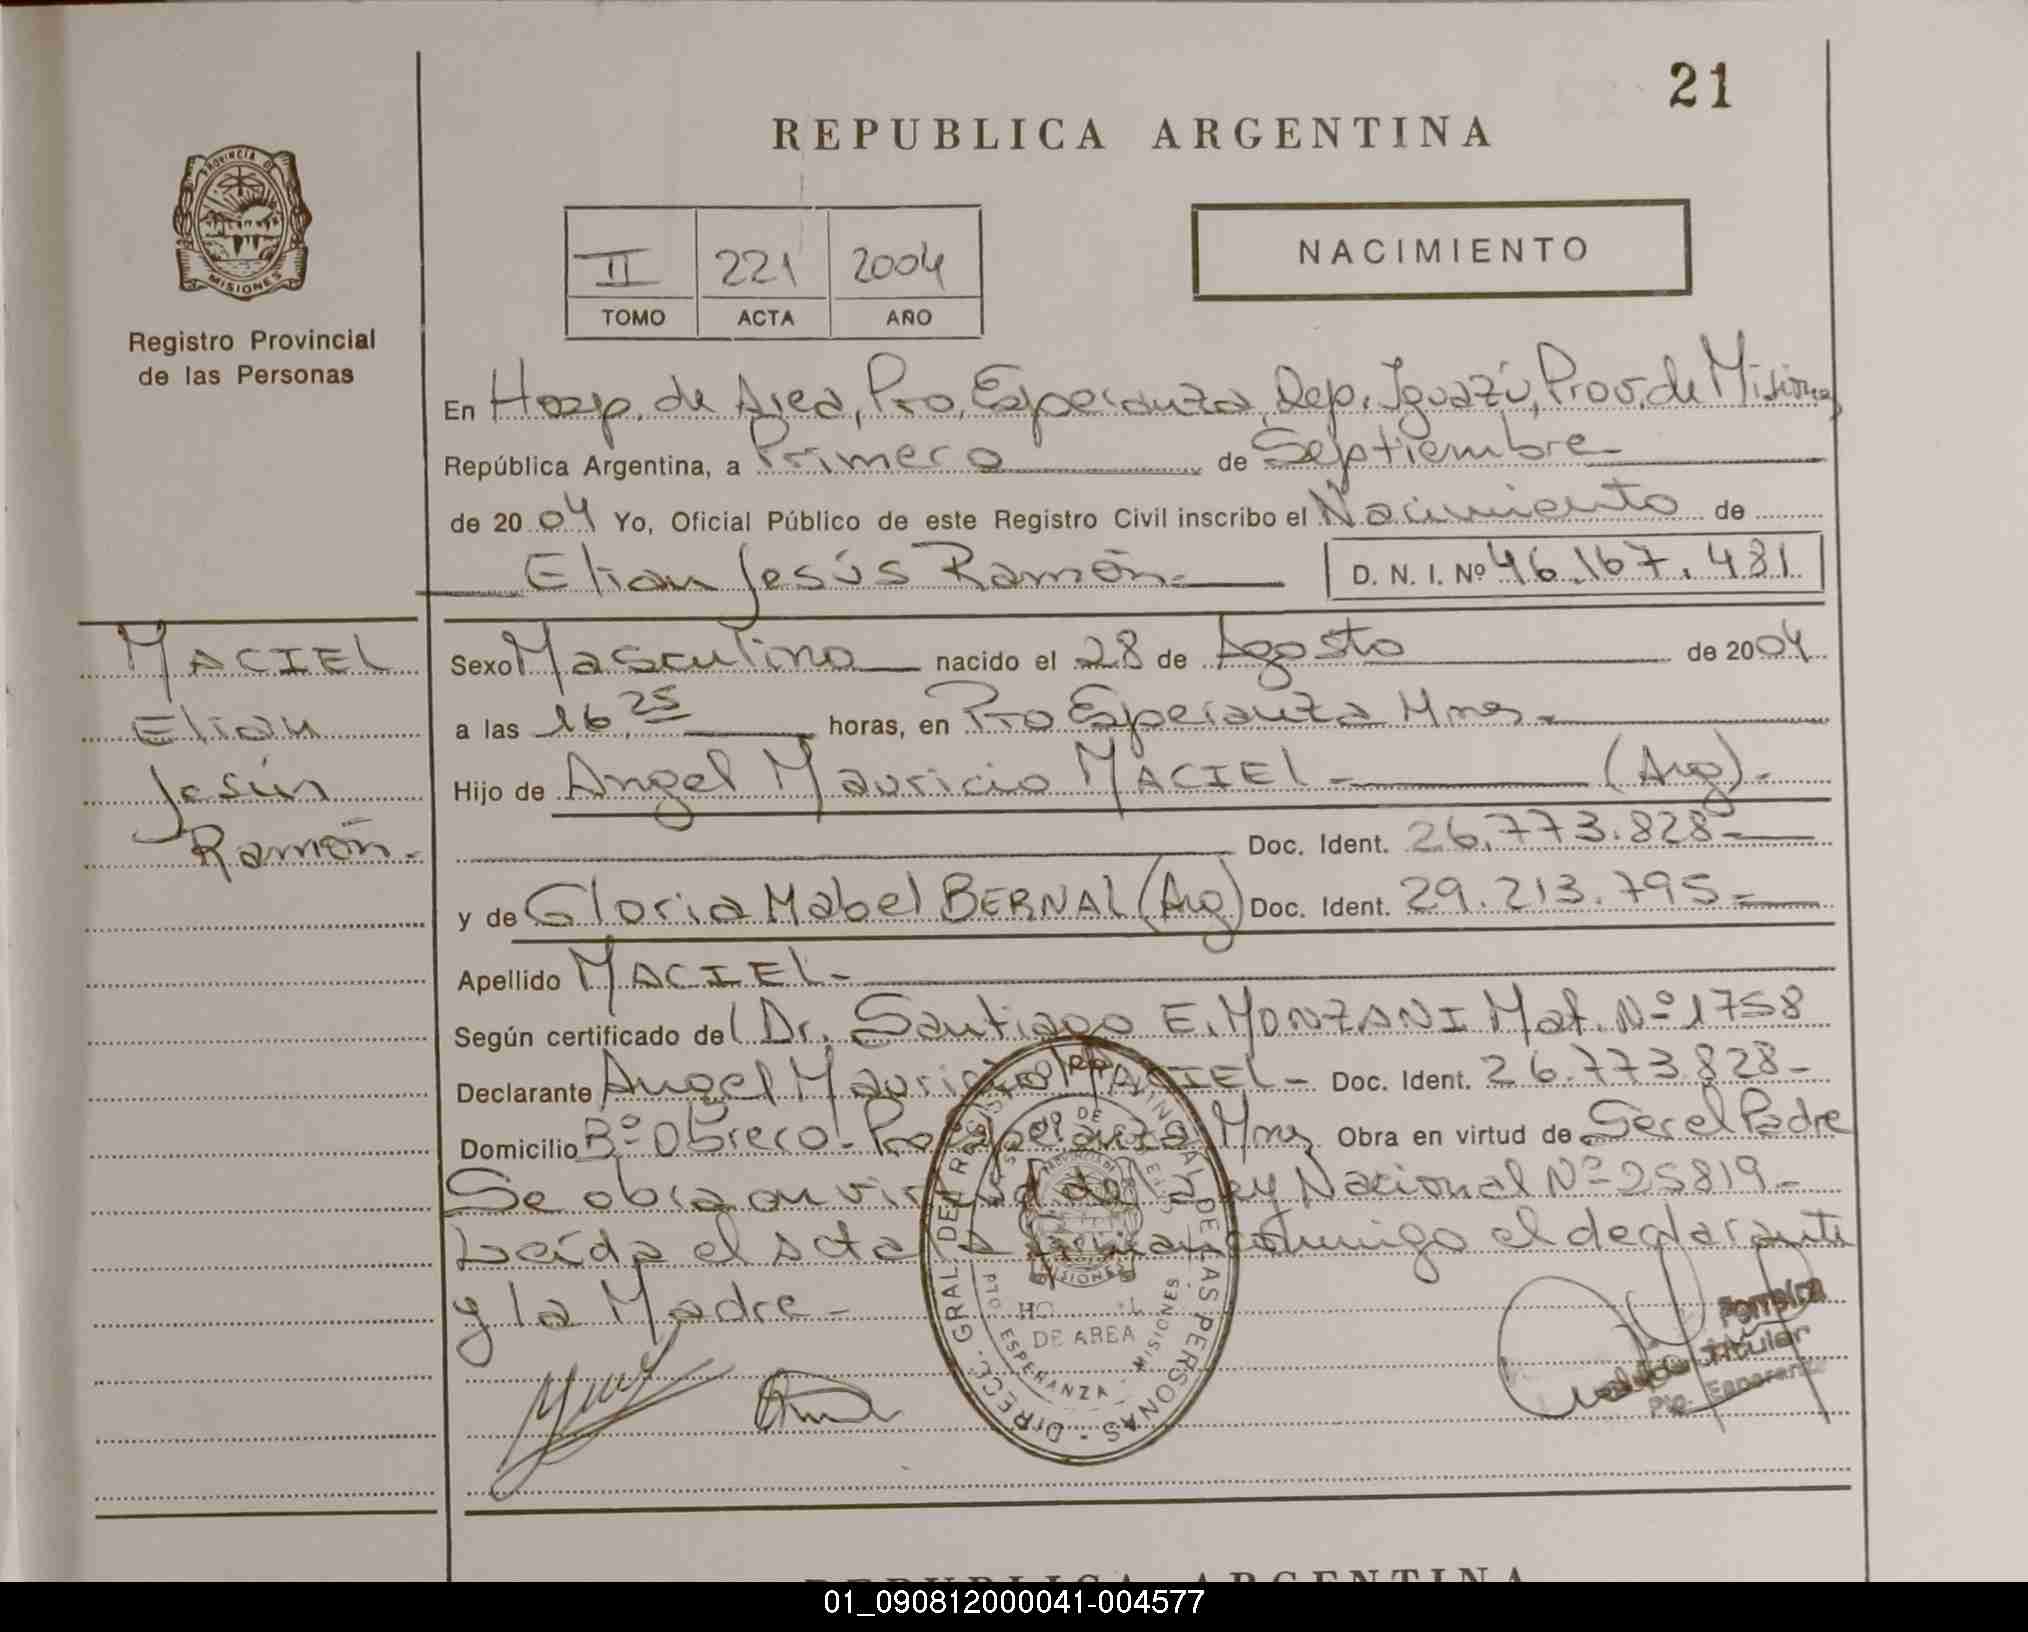 21
REPUBLICA ARGENTINA
PROVINCIA DE
MISIONES
Registro Provincial
de las Personas
II 221 2004
TOMO ACTA AÑO
NACIMIENTO
En Hosp. de Area, Pto. Esperanza, Dep. Iguazú, Prov. de Misiones,
República Argentina, a Primero de Septiembre
de 2004 Yo, Oficial Público de este Registro Civil inscribo el Nacimiento de
Elian Jesús Ramón.= D. N. I. Nº 46.167.431
MACIEL
Elian
Jesús
Ramón.-
Sexo Masculino nacido el 28 de Agosto de 2004
a las 16,25 horas, en Pto Esperanza Mnes.-
Hijo de Angel Mauricio MACIEL - (Arg).-
Doc. Ident. 26.773.828-
y de Gloria Mabel BERNAL (Arg) Doc. Ident. 29.213.795-
Apellido MACIEL-
Según certificado del Dr. Santiago E. MONZANI Mat. Nº 1758
Declarante Angel Mauricio MACIEL- Doc. Ident. 26.773.828-
Domicilio Bº Obrero- Pto Esperanza Mnes. Obra en virtud de Ser el Padre
Se obra en virtud de la Ley Nacional Nº 25819-
Leída el acta la firman conmigo el declarante
y la Madre-
DIRECC. GRAL. DEL REGISTRO PROVINCIAL DE LAS PERSONAS -
MISIONES
DE AREA
PTO ESPERANZA - MISIONES
Titular
Pto. Esperanza
REPUBLICA ARGENTINA
01_090812000041-004577